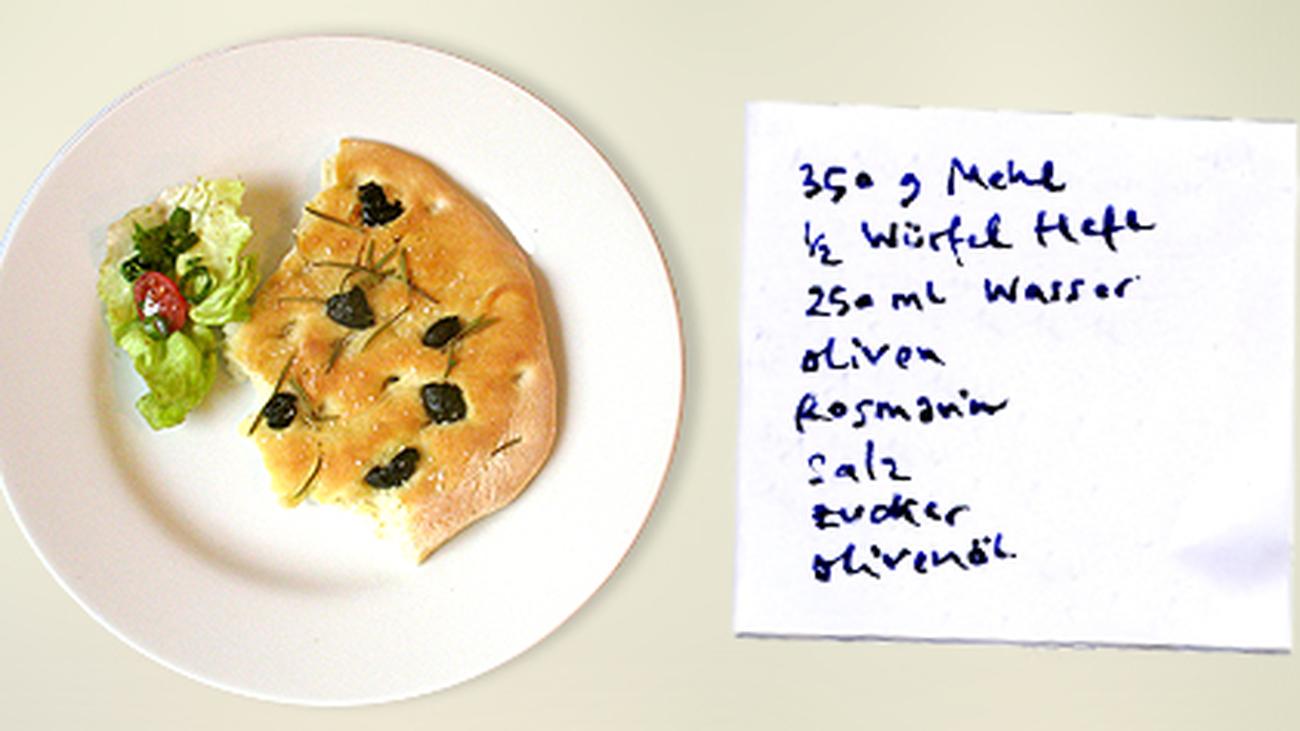 350 g Mehl
½ Würfel Hefe
250 ml Wasser
Oliven
Rosmarin
Salz
Zucker
Olivenöl